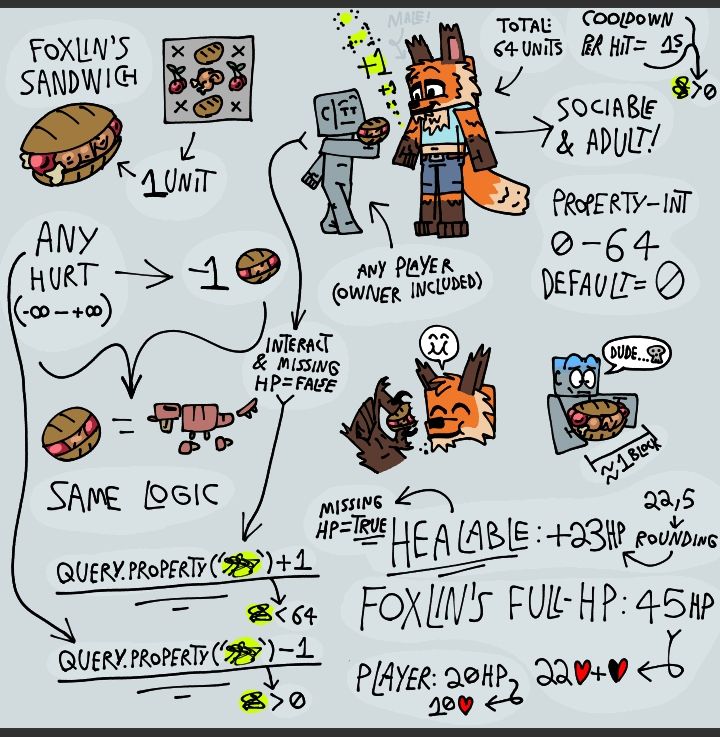 FOXLIN'S
SANDWICH
1 UNIT
MALE!
+1
TOTAL:
64 UNITS
COOLDOWN
PER HIT= 1S
>0
SOCIABLE
& ADULT!
PROPERTY-INT
0-64
DEFAULT=0
ANY PLAYER
(OWNER INCLUDED)
ANY
HURT
(-∞ — +∞)
-1
INTERACT
& MISSING
HP=FALSE
=
SAME LOGIC
DUDE...
~1 BLOCK
MISSING
HP=TRUE
HEALABLE: +23HP
22,5
ROUNDING
QUERY.PROPERTY('')+1
<64
FOXLIN'S FULL-HP: 45HP
QUERY.PROPERTY('')-1
>0
PLAYER: 20HP
10
22 +